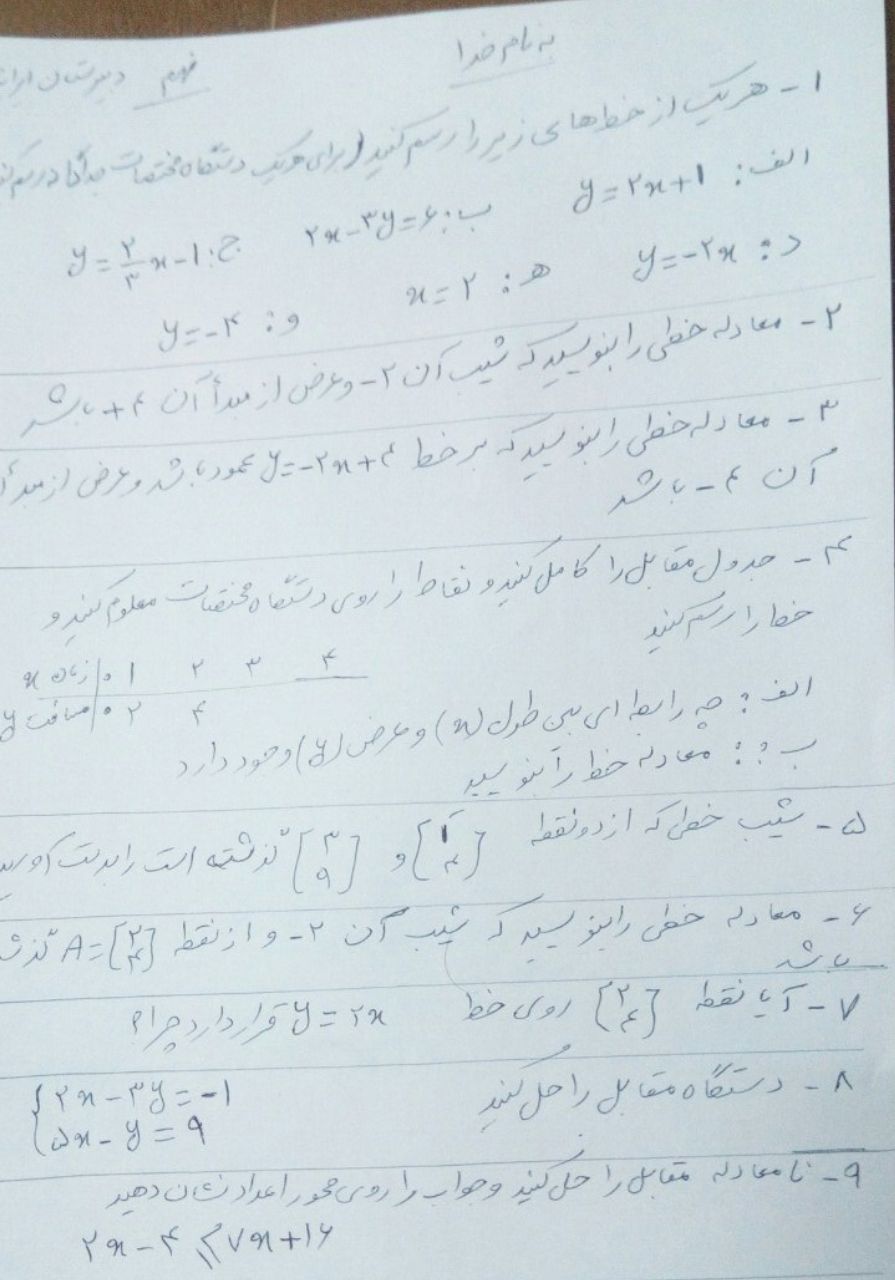 به نام خدا
نهم دبیرستان
۱- هر یک از خط‌های زیر را رسم کنید (برای هر یک دستگاه مختصات جداگانه رسم
الف: y=۲x+۱
ب: ۲x-۳y=۶
ج: y=۲/۳x-۱
د: y=-۲x
هـ: x=۲
و: y=-۴
۲- معادله خطی را بنویسید که شیب آن ۲- و عرض از مبدأ آن ۴+ باشد
۳- معادله خطی را بنویسید که بر خط y=-۲x+۴ عمود باشد و عرض از مبدأ
آن ۴- باشد
۴- جدول مقابل را کامل کنید و نقاط را روی دستگاه مختصات معلوم کنید و
خط را رسم کنید
x زمان | ۰ ۱ ۲ ۳ ۴
y مسافت | ۰ ۲ ۴
الف: چه رابطه ای بین طول (x) و عرض (y) وجود دارد
ب: معادله خط را بنویسید
۵- شیب خطی که از دو نقطه [۱ ۴] و [۳ ۹] گذشته است را بدست آورید
۶- معادله خطی را بنویسید که شیب آن ۲- و از نقطه A=[۲ ۴]
باشد
۷- آیا نقطه [۲ ۴] روی خط y=۲x قرار دارد چرا؟
۸- دستگاه مقابل را حل کنید
{۲x-۳y=-۱
۵x-y=۹
۹- نامعادله مقابل را حل کنید و جواب را روی محور اعداد نشان دهید
۲x-۴ ⩾ ۷x+۱۶